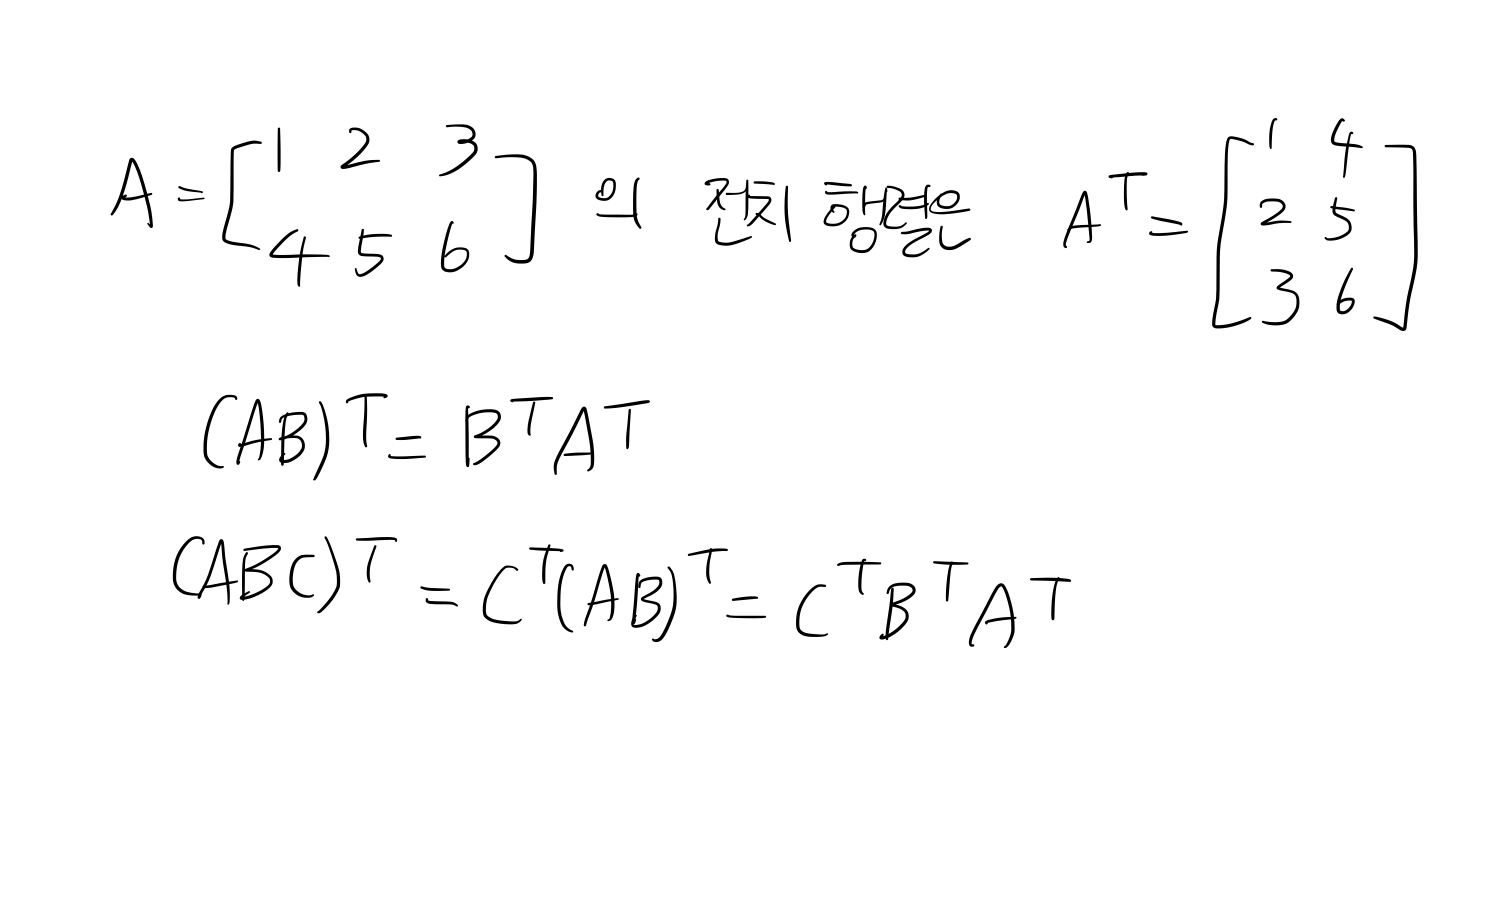 A = [1 2 3; 4 5 6] 의 전치 행렬은 A^T = [1 4; 2 5; 3 6]
(AB)^T = B^T A^T
(ABC)^T = C^T (AB)^T = C^T B^T A^T